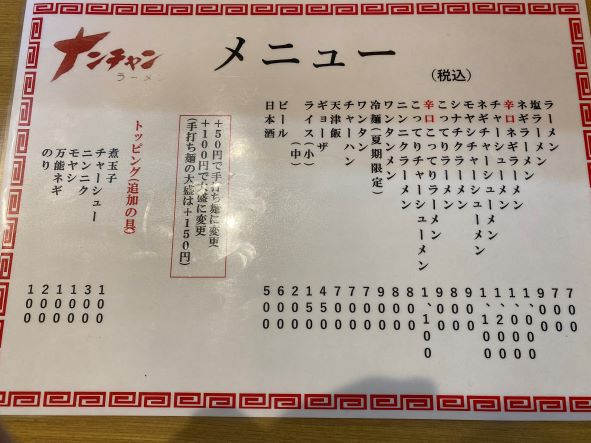 ナンチャン
ラーメン
メニュー
(税込)
ラーメン 700
塩ラーメン 700
ネギラーメン 900
辛口ネギラーメン 1,000
チャーシューメン 1,000
ネギチャーシューメン 1,200
モヤシチャーシューメン 1,100
シナチクラーメン 900
こってりラーメン 800
辛口こってりラーメン 900
こってりチャーシューメン 1,100
ニンニクラーメン 800
ワンタンメン 800
冷麺(夏期限定) 900
ワンタン 700
チャーハン 700
天津飯 700
ギョーザ 450
ライス(小) 150
(中) 200
ビール 600
日本酒 500
+50円で手打ち麺に変更
+100円で大盛に変更
(手打ち麺の大盛は+150円)
トッピング(追加の具)
煮玉子 100
チャーシュー 300
ニンニク 100
モヤシ 100
万能ネギ 200
のり 100